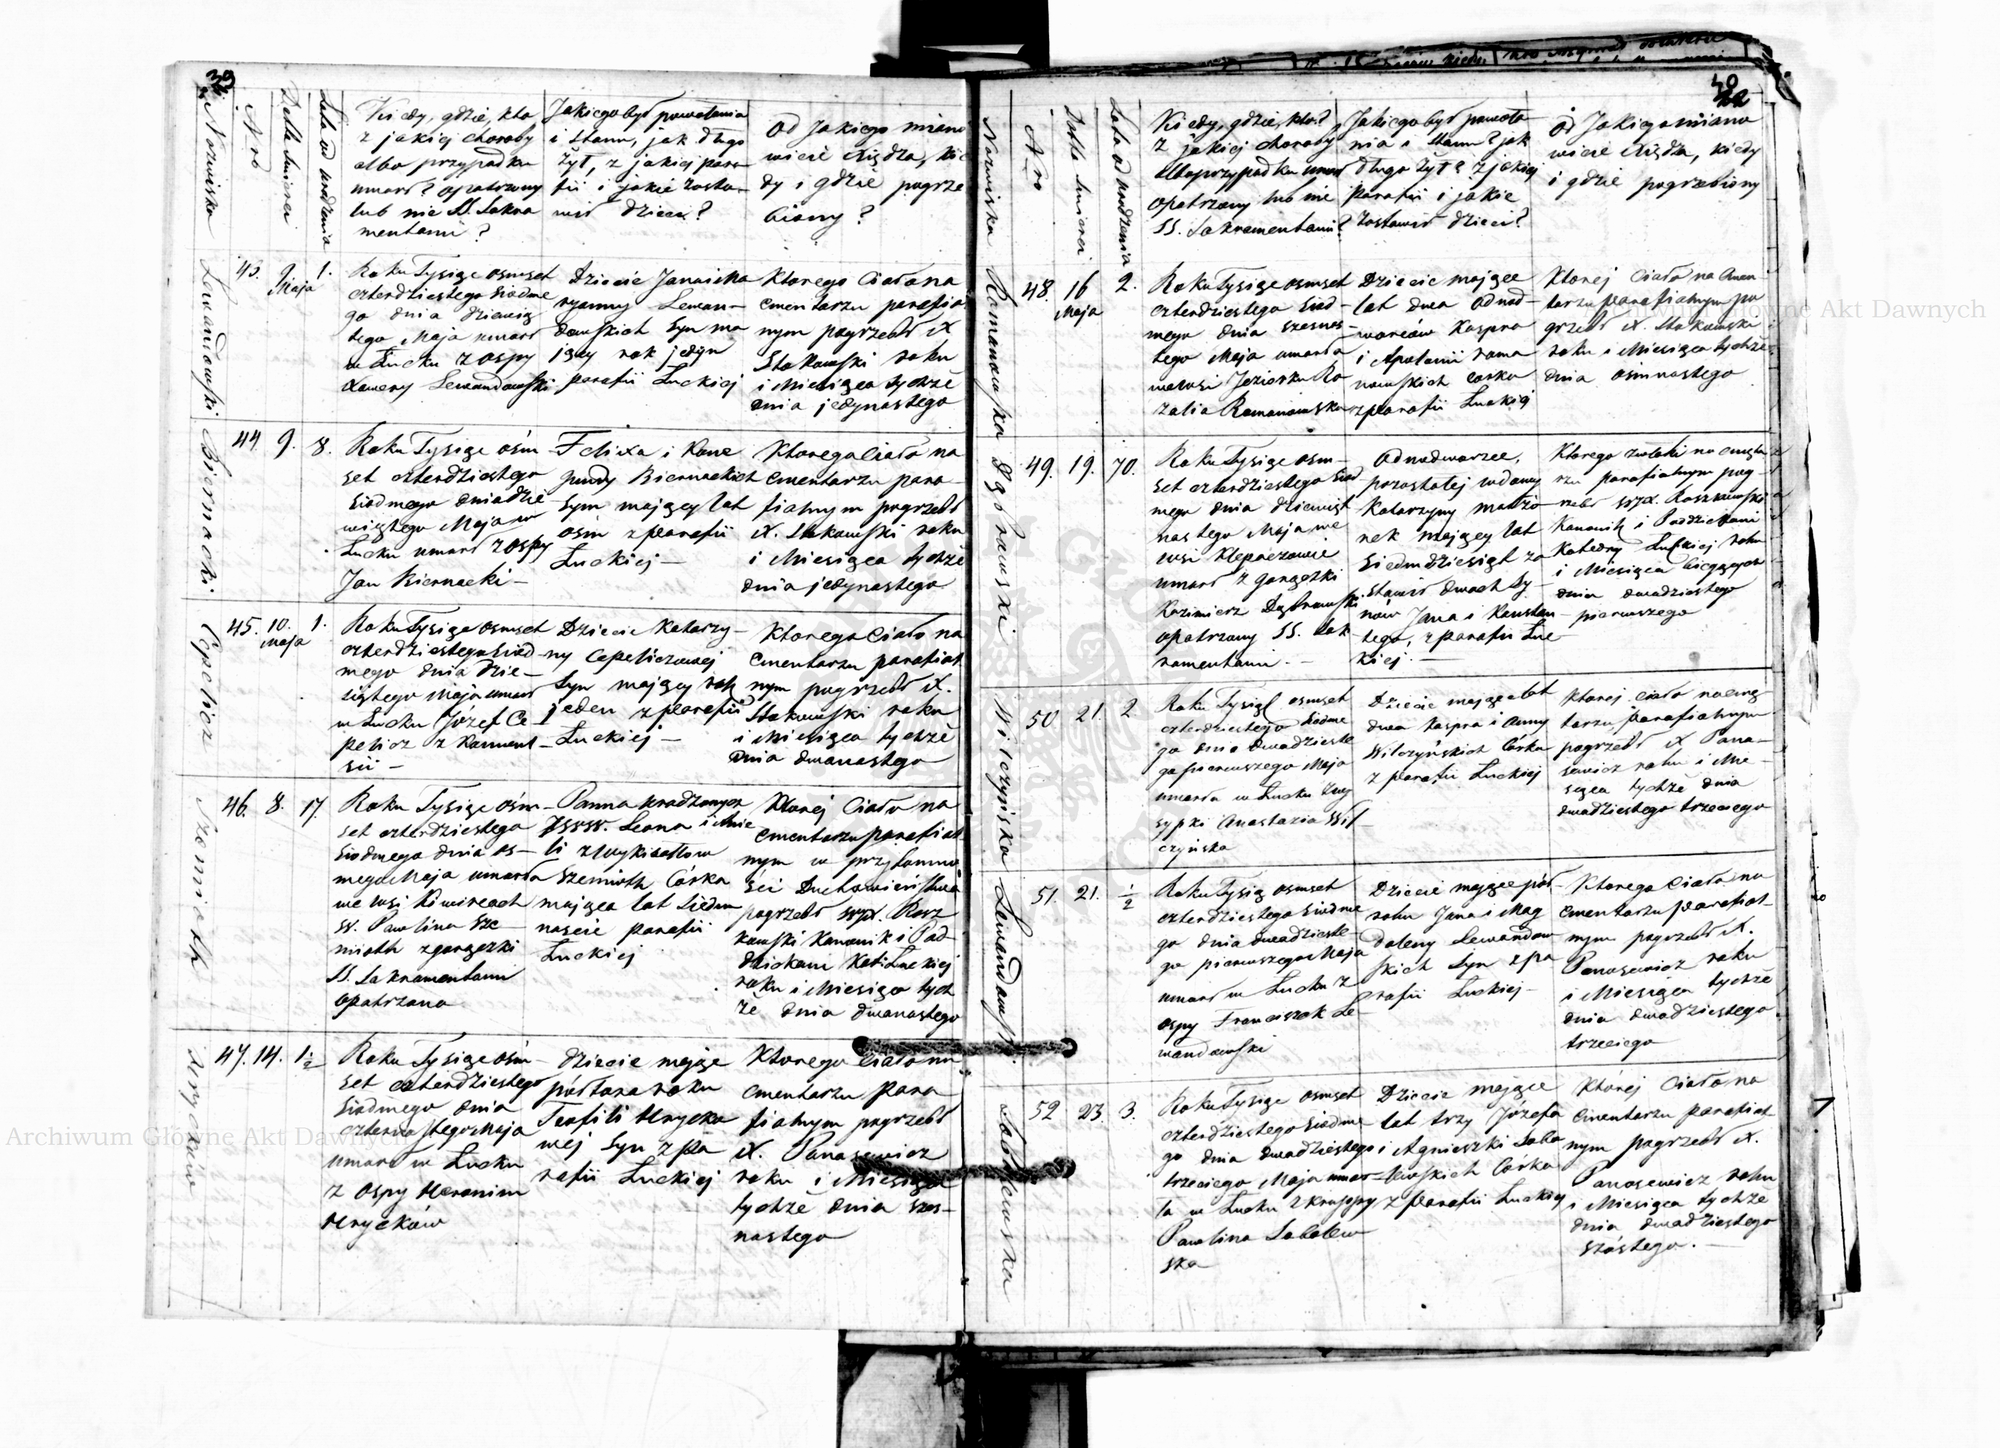 39
Nazwiska
Nro
Data śmierci
Lata od urodzenia
Kiedy, gdzie, kto
z jakiej choroby
albo przypadku
umarł? opatrzony
lub nie SS. Sakra
mentami?
Jakiego był powołania
i stanu, jak długo
żył, z jakiej para-
fii i jakie zosta-
wił dzieci?
Od Jakiego miano
wicie Księdza, kie
dy i gdzie pogrze
biony?
Lewandowski
43. 9 Maja 1.
Roku Tysiąc osmset
czterdziestego Siódme
go dnia dziewią
tego Maja umarł
w Łucku z ospy
Xawery Lewandowski
Dziecie Janai Ka
Lewan-
dowskich Syn ma
jący rok jedyn
parafii Łuckiej
Ktorego Ciało na
cmentarzu parafial
nym pogrzebł X
Stakowski roku
i Miesiąca tychże
dnia jedynastego
Biernacki
44 9. 8.
Roku Tysiąc ośm-
set czterdziestego
Siódmego dnia dzie
wiątego Maja w
Łucku umarł z ospy
Jan Biernacki-
Felixa i Kune
gundy Biernackich
Syn mający lat
ośm z parafii
Łuckiej-
Ktorego Ciało na
cmentarzu para-
fialnym pogrzebł
X. Stakowski roku
i Miesiąca tychże
dnia jedynastego
Cepelicz
45. 10. Maja 1.
Roku Tysiąc osmset
czterdziestego Siód
mego dnia Dzie-
siątego Maja umarł
w Łucku Józef Ce
pelicz z Konwul-
sii-
Dziecie Katarzy-
ny Cepeliczowej
Syn mający rok
jeden z parafii
Łuckiej-
Ktorego Ciało na
cmentarzu parafial
nym pogrzebł X.
Stakowski roku
i Miesiąca tychże
dnia dwanastego
Szemioth
46. 8. 17.
Roku Tysiąc ośm-
set czterdziestego
Siódmego dnia os-
mego Maja umarła
we wsi Kiwircach
W. Paulina Sze-
mioth z gorączki
SS. Sakramentami
opatrzona
Panna urodzonych
JWW. Leona i
li z Szemioth Córka
mająca lat Siedm
naście parafii
Łuckiej
Ktorej Ciało na
cmentarzu parafial
nym w przytomno
ści Duchowieństwa
pogrzebł WJX. Rosz
kowski Kanonik i Pod-
dziekani Kat: Łuckiej
roku i Miesiąca tych
że dnia dwanastego
Hrycków
47. 14. 1½
Roku Tysiąc ośm-
set czterdziestego
Siódmego dnia
czternastego Maja
umarł w Łucku
z ospy Heronim
Hryckow
dziecie mające
półtora roku
Teofili Hrycko
wej Syn z pa
rafii Łuckiej
Ktorego Ciało na
cmentarzu para
fialnym pogrzebł
X. Panasewicz
roku i Miesiąca
tychże dnia szes-
nastego
40
22
Nazwiska
Nro
Data śmierci
Lata od urodzenia
Kiedy, gdzie, kto?
z jakiej choroby
albo przypadku umarł
opatrzony lub nie
SS. Sakramentami?
Jakiego był powoła
nia i stanu? jak
długo żył? z jakiej
parafii i jakie
zostawił dzieci?
Od Jakiego miano
wicie Księdza, kiedy
i gdzie pogrzebiony
Romanowska
48. 16 Maja 2.
Roku Tysiąc osmset
czterdziestego Siód-
mego dnia szesnas-
tego Maja umarła
we wsi Jeziorku Ro
zalia Romanowska
Dziecie mające
lat dwa odnod-
worców Kaspra
i Apolonii Roma
nowskich corka
z parafii Łuckiej
Ktorej Ciało na Cmen
tarzu Parafialnym po
grzebł X. Stakowski
roku i Miesiąca tychże
dnia osmnastego
Dąbrowski
49. 19. 70.
Roku Tysiąc osm-
set czterdziestego Siód
mego dnia dziewięt
nastego Maja we
wsi Klepaczowie
umarł z gorączki
Kazimierz Dąbrowski
opatrzony SS. Sak
ramentami.-
Odnodworzec,
pozostałej wdowy
Katarzyny małżo
nek mający lat
Siedmdziesiąt zo
stawił dwoch Sy-
nów Jana i Konstan
tego, z parafii Łuc
kiej.-
Ktorego zwłoki na cmenta
rzu parafialnym pog
rzebł WJX. Roszkowski
Kanonik i Poddziekani
Katedry Łuckiej roku
i Miesiąca bieżących
dnia dwadziestego
pierwszego
Wilczyńska
50 21. 2.
Roku Tysiąc osmset
czterdziestego Siódme
go dnia dwadzieste
go pierwszego Maja
umarła w Łucku z wy
sypki Anastazia Wil
czyńska
Dziecie mające lat
dwa Kaspra i Anny
Wilczyńskich Córka
z parafii Łuckiej
Ktorej ciało na cmę
tarzu parafialnym
pogrzebł X Pana-
sewicz roku i Mie-
siąca tychże dnia
dwadziestego trzeciego
Lewandowski
51. 21. ½
Roku Tysiąc osmset
czterdziestego Siódme
go dnia dwadzieste-
go pierwszego Maja
umarł w Łucku z
ospy Franciszek Le
wandowski
Dziecie mające pół-
roku Jana i Mag
daleny Lewandow
skich Syn z pa
rafii Łuckiej-
Ktorego Ciało na
cmentarzu parafial-
nym pogrzebł X.
Panasewicz roku
i Miesiąca tychże
dnia dwadziestego
trzeciego
Sobolewska
52 23 3.
Roku Tysiąc osmset
czterdziestego Siódme
go dnia dwadziestego
trzeciego Maja umar-
ła w Łucku z kruppy
Paulina Sobolew
ska
Dziecie mające
lat trzy Józefa
i Agnieszki Sobo
lewskich Córka
z parafii Łuckiej
Której Ciało na
cmentarzu parafial
nym pogrzebł X.
Panasewicz roku
i Miesiąca tychże
dnia dwadziestego
szóstego.-
Archiwum Główne Akt Dawnych
Archiwum Główne Akt Dawnych